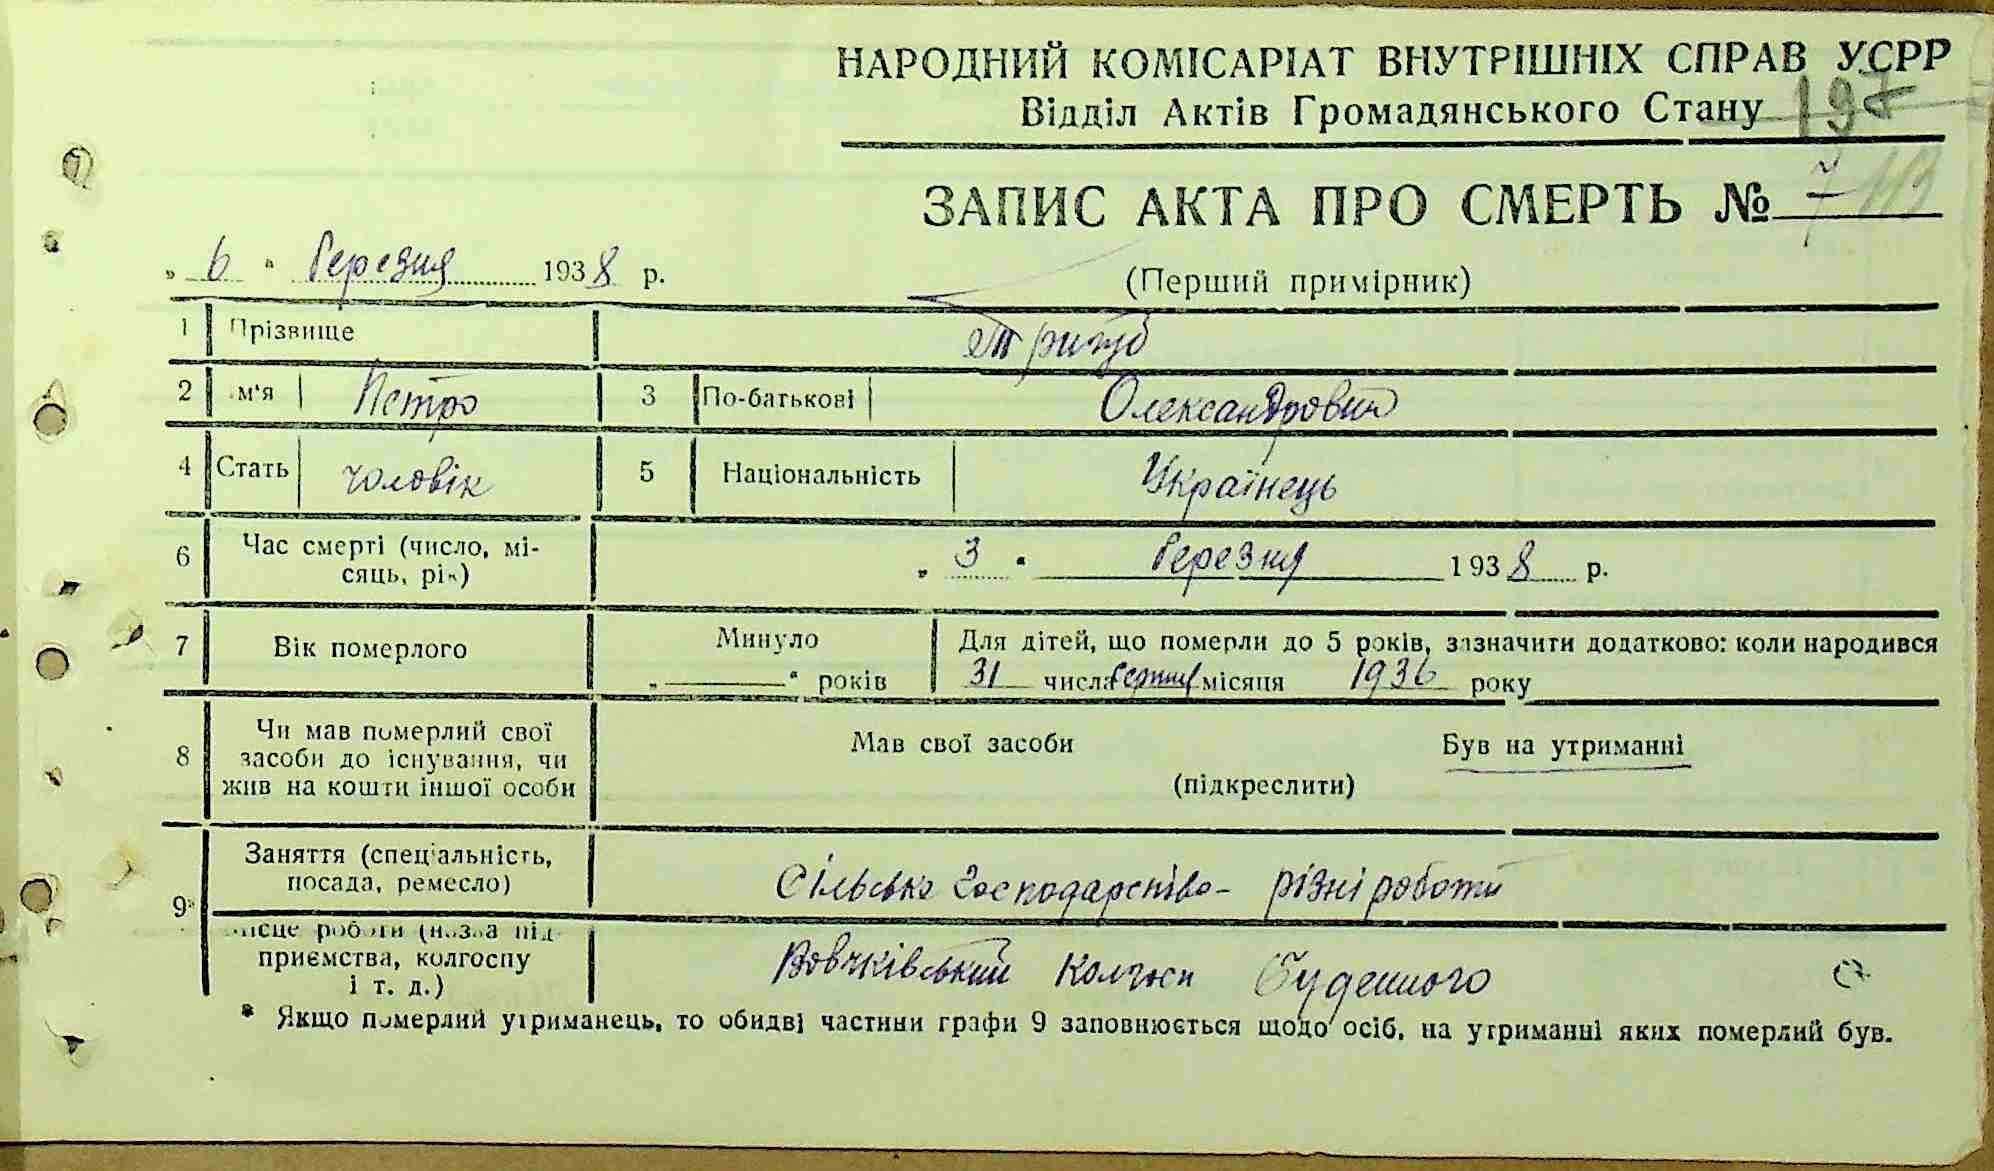 НАРОДНИЙ КОМІСАРІАТ ВНУТРІШНІХ СПРАВ УСРР
Відділ Актів Громадянського Стану 197
ЗАПИС АКТА ПРО СМЕРТЬ № 7 113
„ 6 " березня 1938 р.
(Перший примірник)
1 Прізвище Тригуб
2 м'я Петро 3 По-батькові Олександрович
4 Стать чоловік 5 Національність Українець
6 Час смерті (число, мі-
сяць, рік) „ 3 " березня 1938 р.
7 Вік померлого Минуло
„ — " років
Для дітей, що померли до 5 років, зазначити додатково: коли народився
31 числа серпня місяця 1936 року
8 Чи мав померлий свої
засоби до існування, чи
жив на кошти іншої особи
Мав свої засоби Був на утриманні
(підкреслити)
9* Заняття (спеціальність,
посада, ремесло) Сільське господарство - різні роботи
місце роботи (назва під-
приємства, колгоспу
і т. д.) Вовчківський Колгосп Буденного
* Якщо померлий утриманець, то обидві частини графи 9 заповнюється щодо осіб, на утриманні яких померлий був.